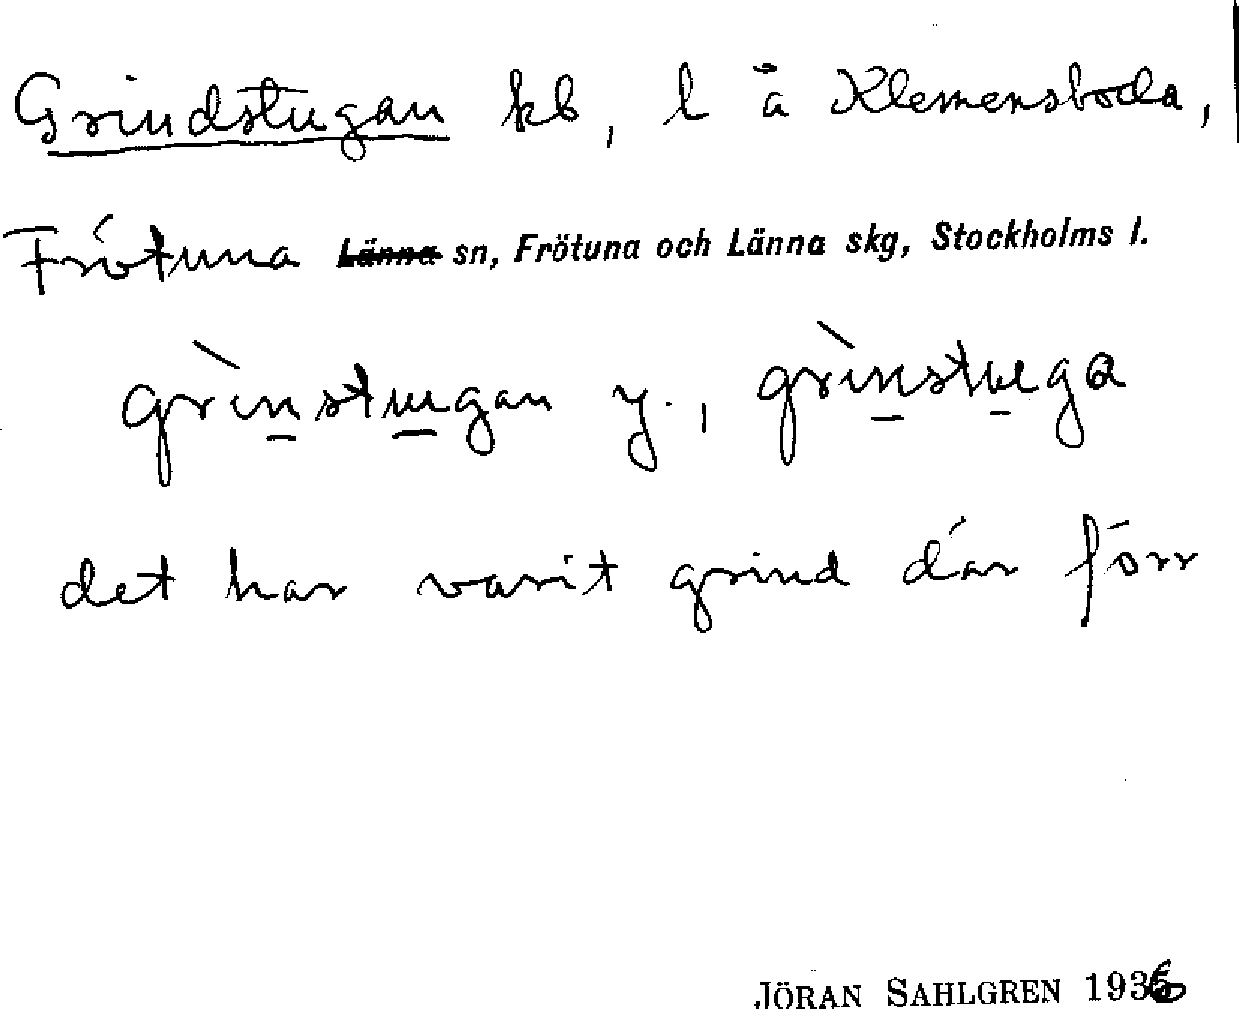 Grindstugan kb, l å Klemensboda,
Frötuna Länna sn, Frötuna och Länna skg, Stockholms l.
grìnstugan y., grìnstuga
det har varit grind där förr
JÖRAN SAHLGREN 1936